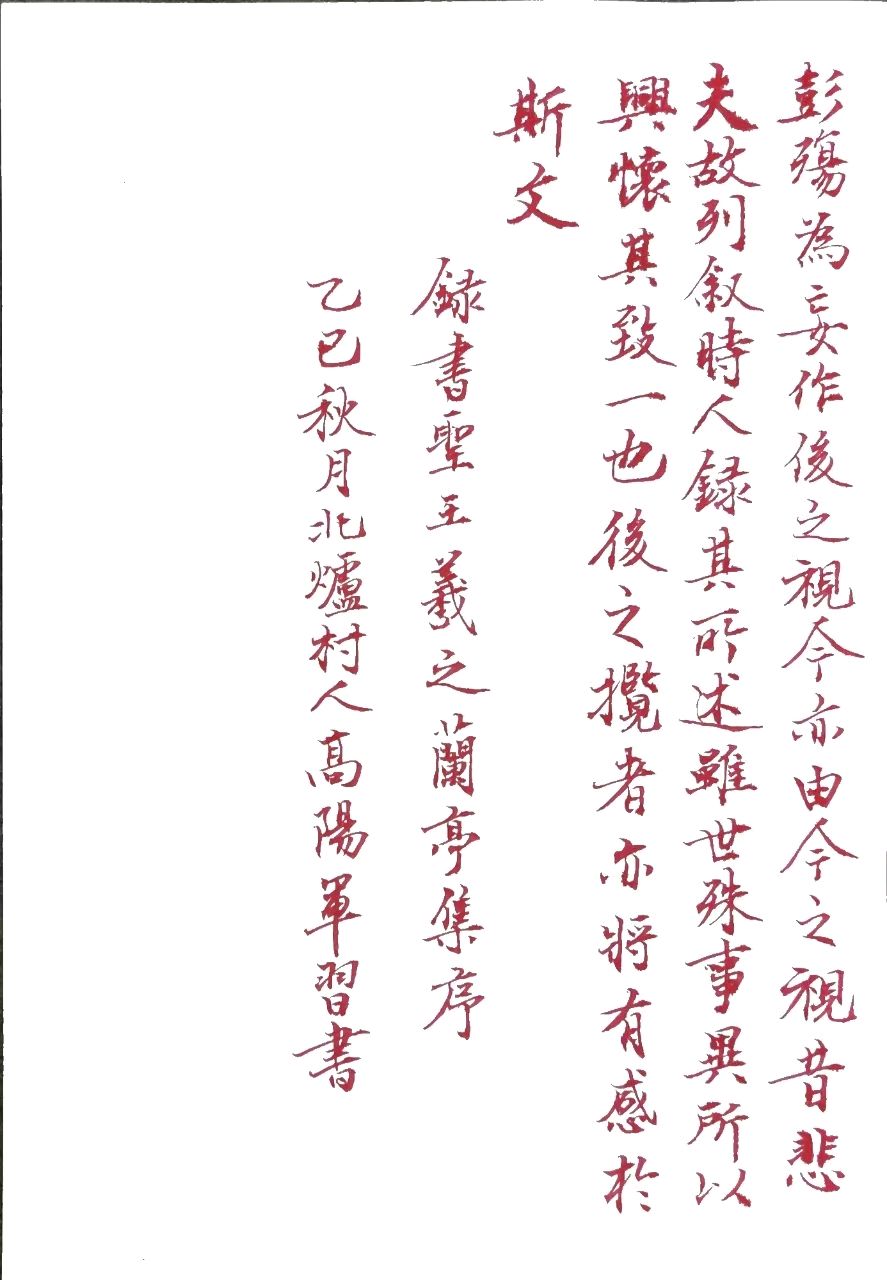 彭殤為妄作後之視今亦由今之視昔悲
夫故列叙時人録其所述雖世殊事異所以
興懷其致一也後之攬者亦將有感於
斯文
録書聖王羲之蘭亭集序
乙巳秋月北爐村人高陽軍習書